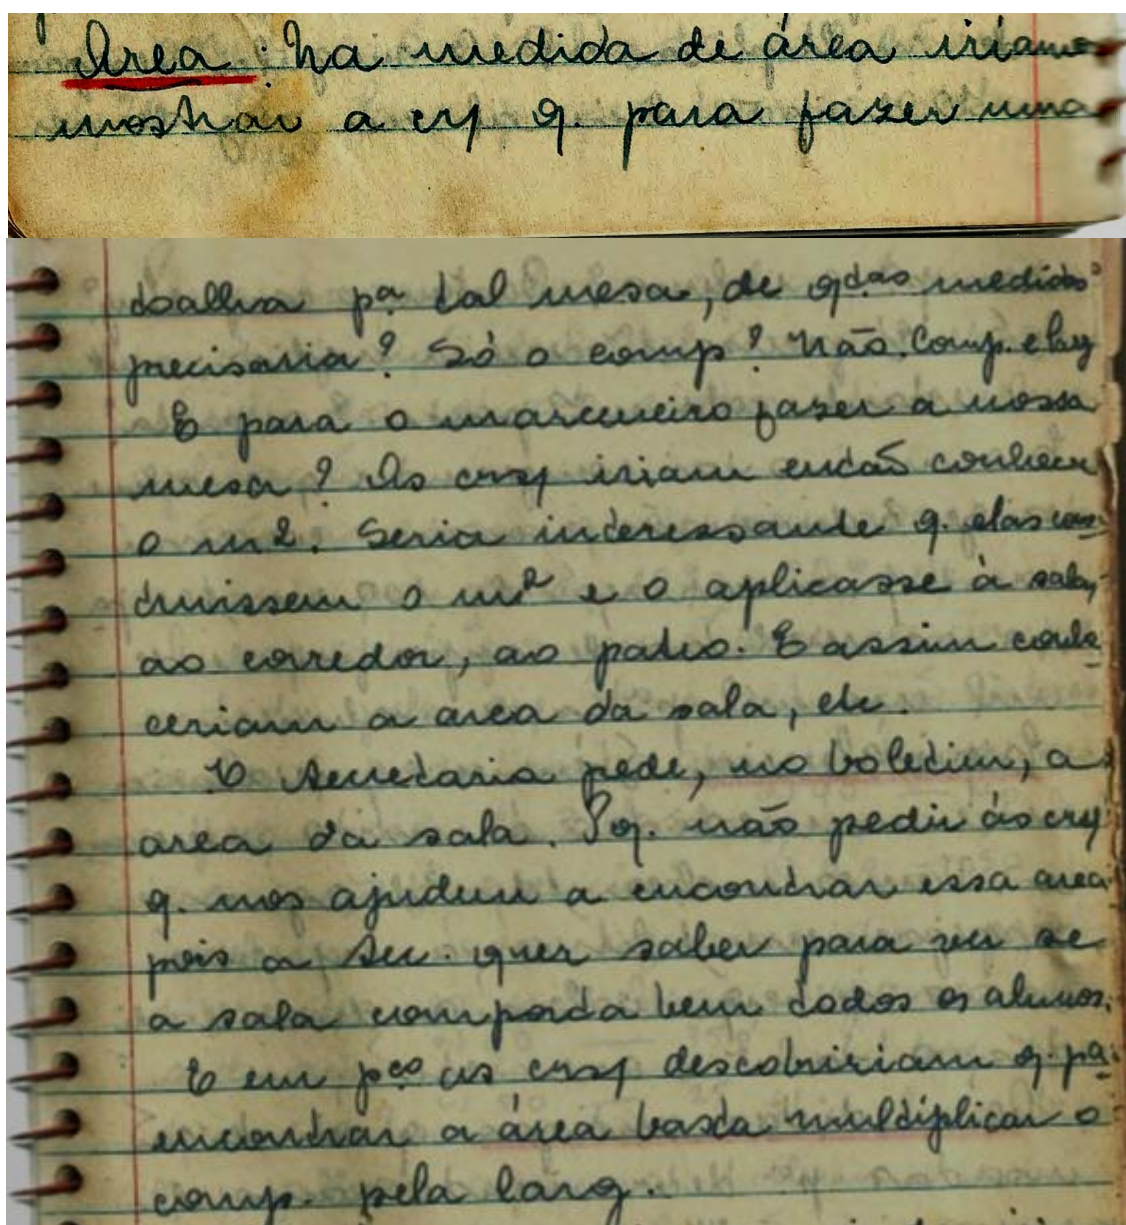 Área: Na medida de área iriamos
mostrar a crç q. para fazer uma
toalha pª tal mesa, de qdas medidas
precisaria? Só o comp? Não. Comp. e larg
E para o marceneiro fazer a nossa
mesa? As crsç iriam então conhecer
o m2. Seria interessante q. elas cons-
truissem o m² e o aplicasse à sala,
ao corredor, ao pateo. E assim conhe-
ceriam a area da sala, etc.
A Secretaria pede, no boletim, a
area da sala. Pq. não pedir ás crç
q. nos ajudem a encontrar essa area
pois a Sec. quer saber para ver se
a sala comporta bem todos os alunos.
E em pco as crsç descobririam q. pª
encontrar a área basta multiplicar o
comp. pela larg.